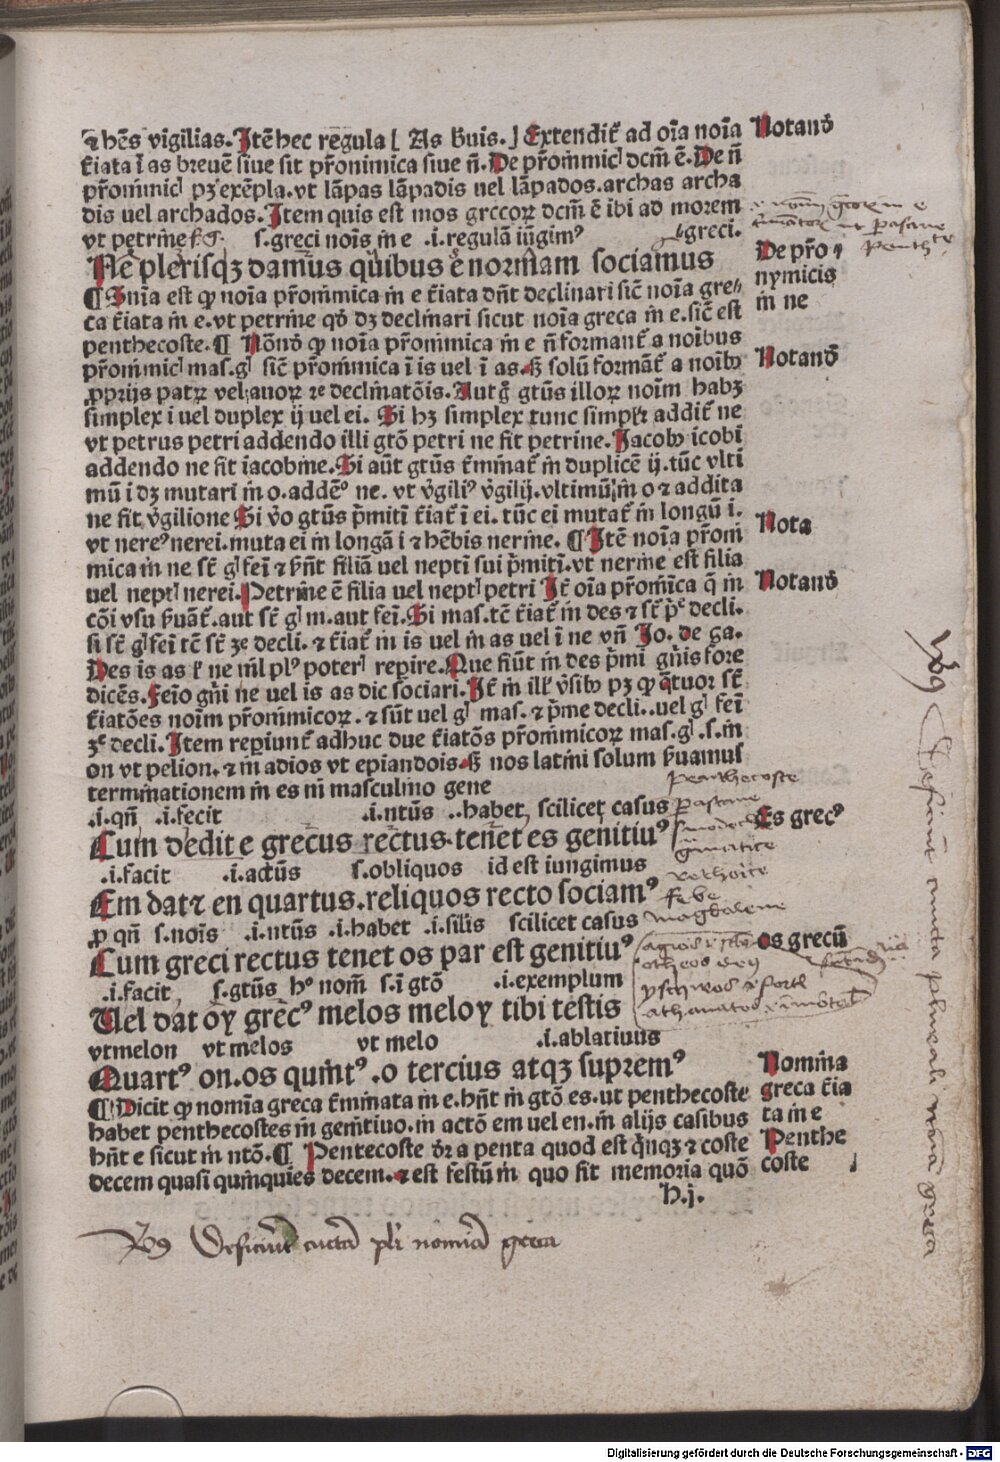 ⁊ hēs vigilias. Itē hec regula [ As ƀuis. ] Extendit̄ ad oīa noīa
t̄iata ī as breuē siue sit pr̄onimica siue n̄. De pr̄omīcꝭ dcm̄ ē. De n̄
pr̄ominicꝭ pꝫ exēpla. vt lāpas lāpadis uel lāpados. archas archa
dis uel archados. Item quis est mos grecoꝝ dcm̄ ē ibi ad morem
vt petrine s. greci noīs in e .i. regulā iūgimꝰ greci.
Ne plerisqꝫ damus quibus e normam sociamus
¶ Snīa est ꝙ noīa pr̄ominica in e t̄iata dn̄t declinari sic̄ noīa gre
ca t̄iata in e. vt petrine qd̄ dꝫ declinari sicut noīa greca in e. sic̄ est
penthecoste. ¶ Nōnd̄ ꝙ noīa pr̄ominica in e n̄ formant̄ a noībus
pr̄ominicꝭ mas. gꝭ sic̄ pr̄ominica ī is uel ī as. sꝫ solū formāt̄ a noībꝰ
ꝓprijs patꝝ vel auoꝝ ⁊c declinatōis. Aut gͦ gtūs illoꝝ noīm habꝫ
simplex i uel duplex ij uel ei. Si hꝫ simplex tunc simplꝛ addit̄ ne
vt petrus petri addendo illi gtō petri ne fit petrine. Jacobꝰ icobi
addendo ne fit iacobine. Si aūt gtūs t̄minat̄ in duplicē ij. tūc vlti
mū i dꝫ mutari in o. addēꝰ ne. vt v̄giliꝰ v̄gilij. vltimū in o ⁊ addita
ne fit v̄gilione Si v̄o gtūs p̄mitī t̄iat̄ ī ei. tūc ei mutat̄ in longū i.
vt nereꝰ nerei. muta ei in longā i ⁊ hēbis nerine. ¶ Itē noīa pr̄omi
mica in ne st̄ gꝭ fei ⁊ sign̄t filiā uel nepti sui p̄mitī. vt nerine est filia
uel neptꝭ nerei. Petrine ē filia uel neptꝭ petri It̄ oīa pr̄omīca q̄ in
cōi vsu ƀuāt̄. aut st̄ gꝭ m. aut fei. Si mas. tē t̄iat̄ in des ⁊ st̄ pͤ decli.
si st̄ gꝭ fei tē st̄ 3ͤ decli. ⁊ t̄iat̄ in is uel in as uel ī ne vn̄ Jo. de ga.
Des is as ne nil plꝰ poterꝭ repire. Que fiūt in des p̄mi gn̄is fore
dicēs. Feīo gn̄i ne uel is as dic sociari. It̄ in illꝭ v̄sibꝰ pꝫ ꝙ q̄tuor st̄
t̄iatōes noīm pr̄onimicoꝝ. ⁊ sūt uel gꝭ mas. ⁊ p̄me decli.. uel gꝭ fei
3ͤ decli. Item reperiunt̄ adhuc due t̄iatōs pr̄omīcoꝝ mas. gꝭ. s. in
on vt pelion. ⁊ in adios vt epiandois. sꝫ nos latini solum ƀuamus
terminationem in es in masculino gene
.i. qn̄ .i. fecit .i. ntūs .. habet, scilicet casus
Cum dedit e grecus rectus. tenet es genitiuꝰ
.i. facit .i. actūs s. obliquos id est iungimus
Em datꝛ en quartus. reliquos recto sociamꝰ
ꝓ qn̄ s. noīs .i. ntūs .i. habet .i. silis scilicet casus
Cum greci rectus tenet os par est genitiuꝰ
.i. facit, s. gtūs hꝰ nom̄ s. ī gtō .i. exemplum
Uel dat oy grecꝰ melos meloy tibi testis
vt melon vt melos vt melo .i. ablatiuus
Quartꝰ on. os quintꝰ. o tercius atqꝫ supremꝰ
¶ Dicit ꝙ nomīa greca t̄minata in e. hn̄t in gtō es. ut penthecoste
habet penthecostes in genitiuo. in actō em uel en. in alijs casibus
hn̄t e sicut in ntō. ¶ Pentecoste dr̄ a penta quod est qn̄qꝫ ⁊ coste
decem quasi quinquies decem. ⁊ est festū in quo fit memoria quō
h.j.
Notand̄
De pr̄o
nymicis
in ne
Notand̄
Nota
Notand̄
penthecoste
Es grecꝰ
febe
magdalene
os grecū
Nomina
greca t̄ia
ta in e
Penthe
coste
Deficiūt cuncta pluralia nomīa greca
Deficiūt cūcta pli nomīa greca
Digitalisierung gefördert durch die Deutsche Forschungsgemeinschaft - DFG